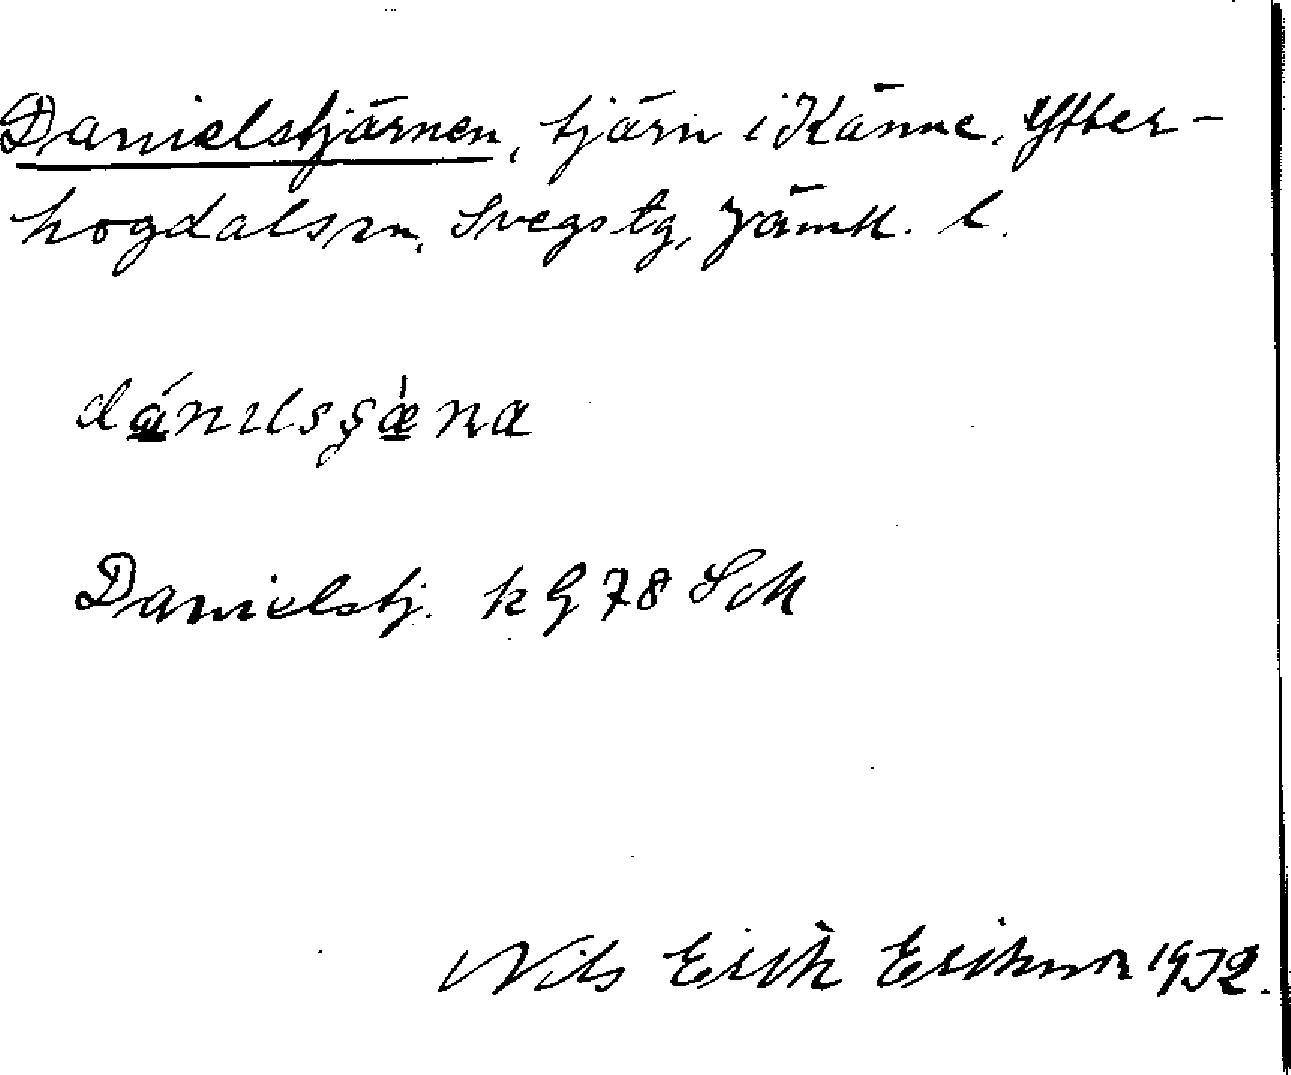 Danielstjärnen, tjärn i Känne, Ytter-
hogdals sn, Svegs tg, Jämtl. l.
Danielstj. k G 78 Sdl
Nils Erik Erikson 1932.